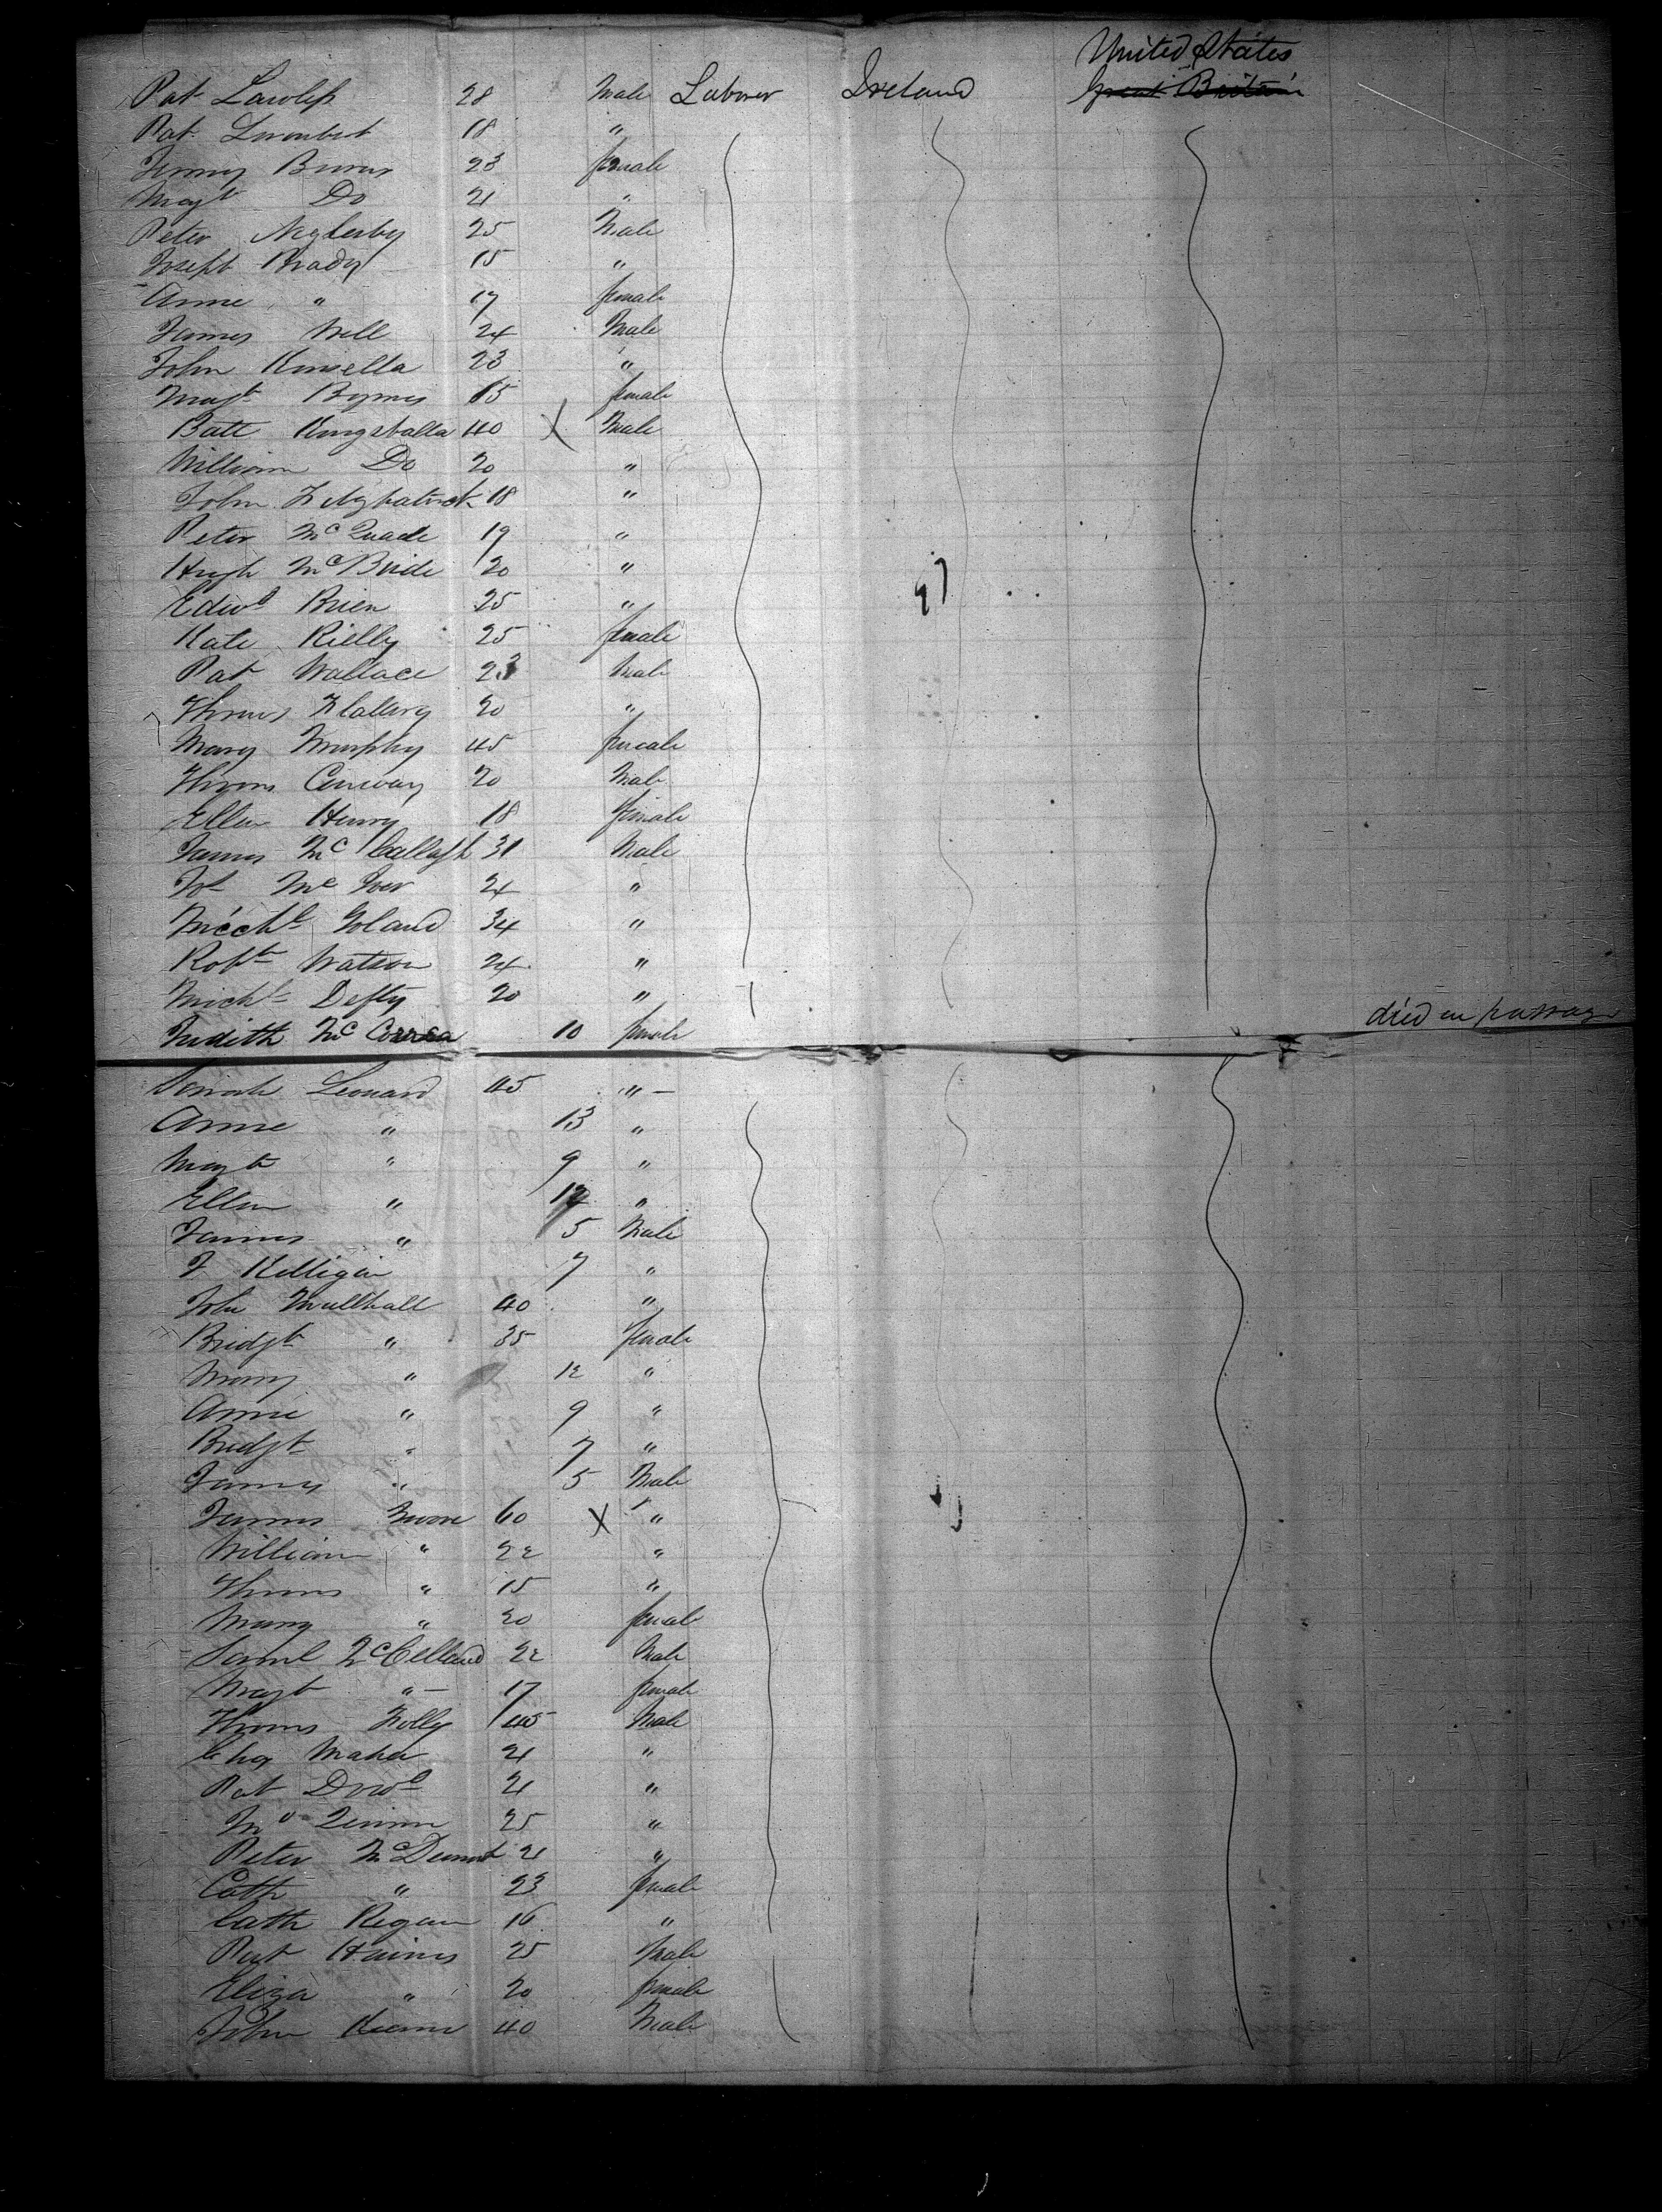 United States
Pat Lawless 28 Male Laborer Ireland Great Britain
Pat 18 "
Burns 23 female
Magt Do 21 "
Peter 25 Male
Joseph Brady 15 "
Anne " 17 female
James Well 24 Male
John Kinsella 23 "
Magt Byrnes 15 female
Batt Kingsballa 40 X Male
William Do 20 "
John 18 "
Peter McQuade 19 "
Hugh McBride 20 "
Edwd Brien 25 "
Kate Rielly 25 female
Pat Wallace 23 Male
Thomas 20 "
Mary Murphy 45 female
Thomas Conway 20 Male
Ellen Henry 18 female
James 31 Male
24 "
Michl Goland 34 "
Robt Watson 24 "
Michl Defty 20 "
Judith Mc 10 female died on passage
Leonard 45 "
Anne " 13 "
Magt " 9 "
Ellen " "
James " 5 Male
J Killigan 7 "
John Mullhall 40 "
Bridgt " 35 female
Mary " 12 "
Anne " 9 "
Bridgt " 7 "
James " 5 Male
James Moore 60 X "
William " 22 "
Thomas " 15 "
Mary " 20 female
Saml McClelland 22 Male
Magt " 17 female
Thomas 45 Male
Maher 21 "
Pat Dowd 21 "
Quinn 25 "
Peter McDermot 21 "
Cath " 23 female
Cath Regan 16 "
Pat Haines 25 Male
Eliza " 20 female
John 40 Male